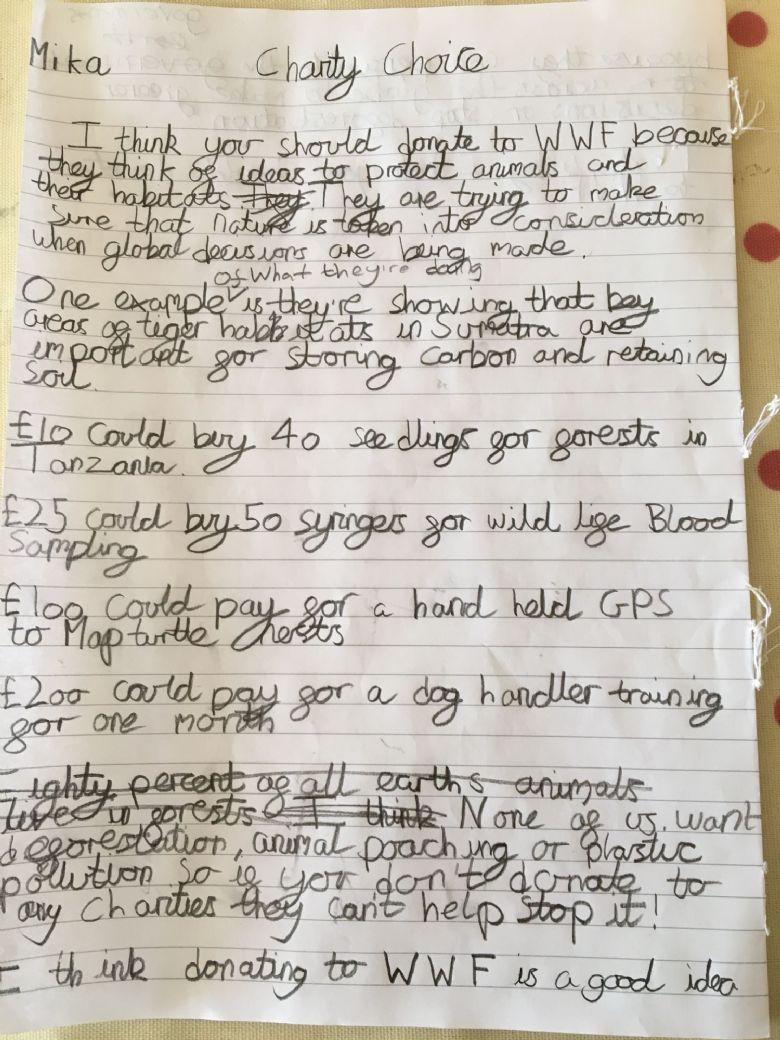 Mika Charity Choice
I think you should donate to WWF because
they think of ideas to protect animals and
their habitats They They are trying to make
sure that nature is taken into consideration
when global decusions are being made.
of what they're doing
One example is they're showing that bey
areas of tiger habitats in Sumatra are
important for storing carbon and retaining
Soil.
£10 Could buy 40 seedlings for forests in
Tanzania.
£25 could buy 50 syringers for wild life Blood
Sampling
£100 Could pay for a hand held GPS
to Map turtle nests
£200 could pay for a dog handler training
for one month
Eighty percent of all earths animals
live in forests I think None of us want
deforestation, animal poaching or plastic
pollution So if you don't donate to
any Charities they can't help stop it!
I think donating to WWF is a good idea